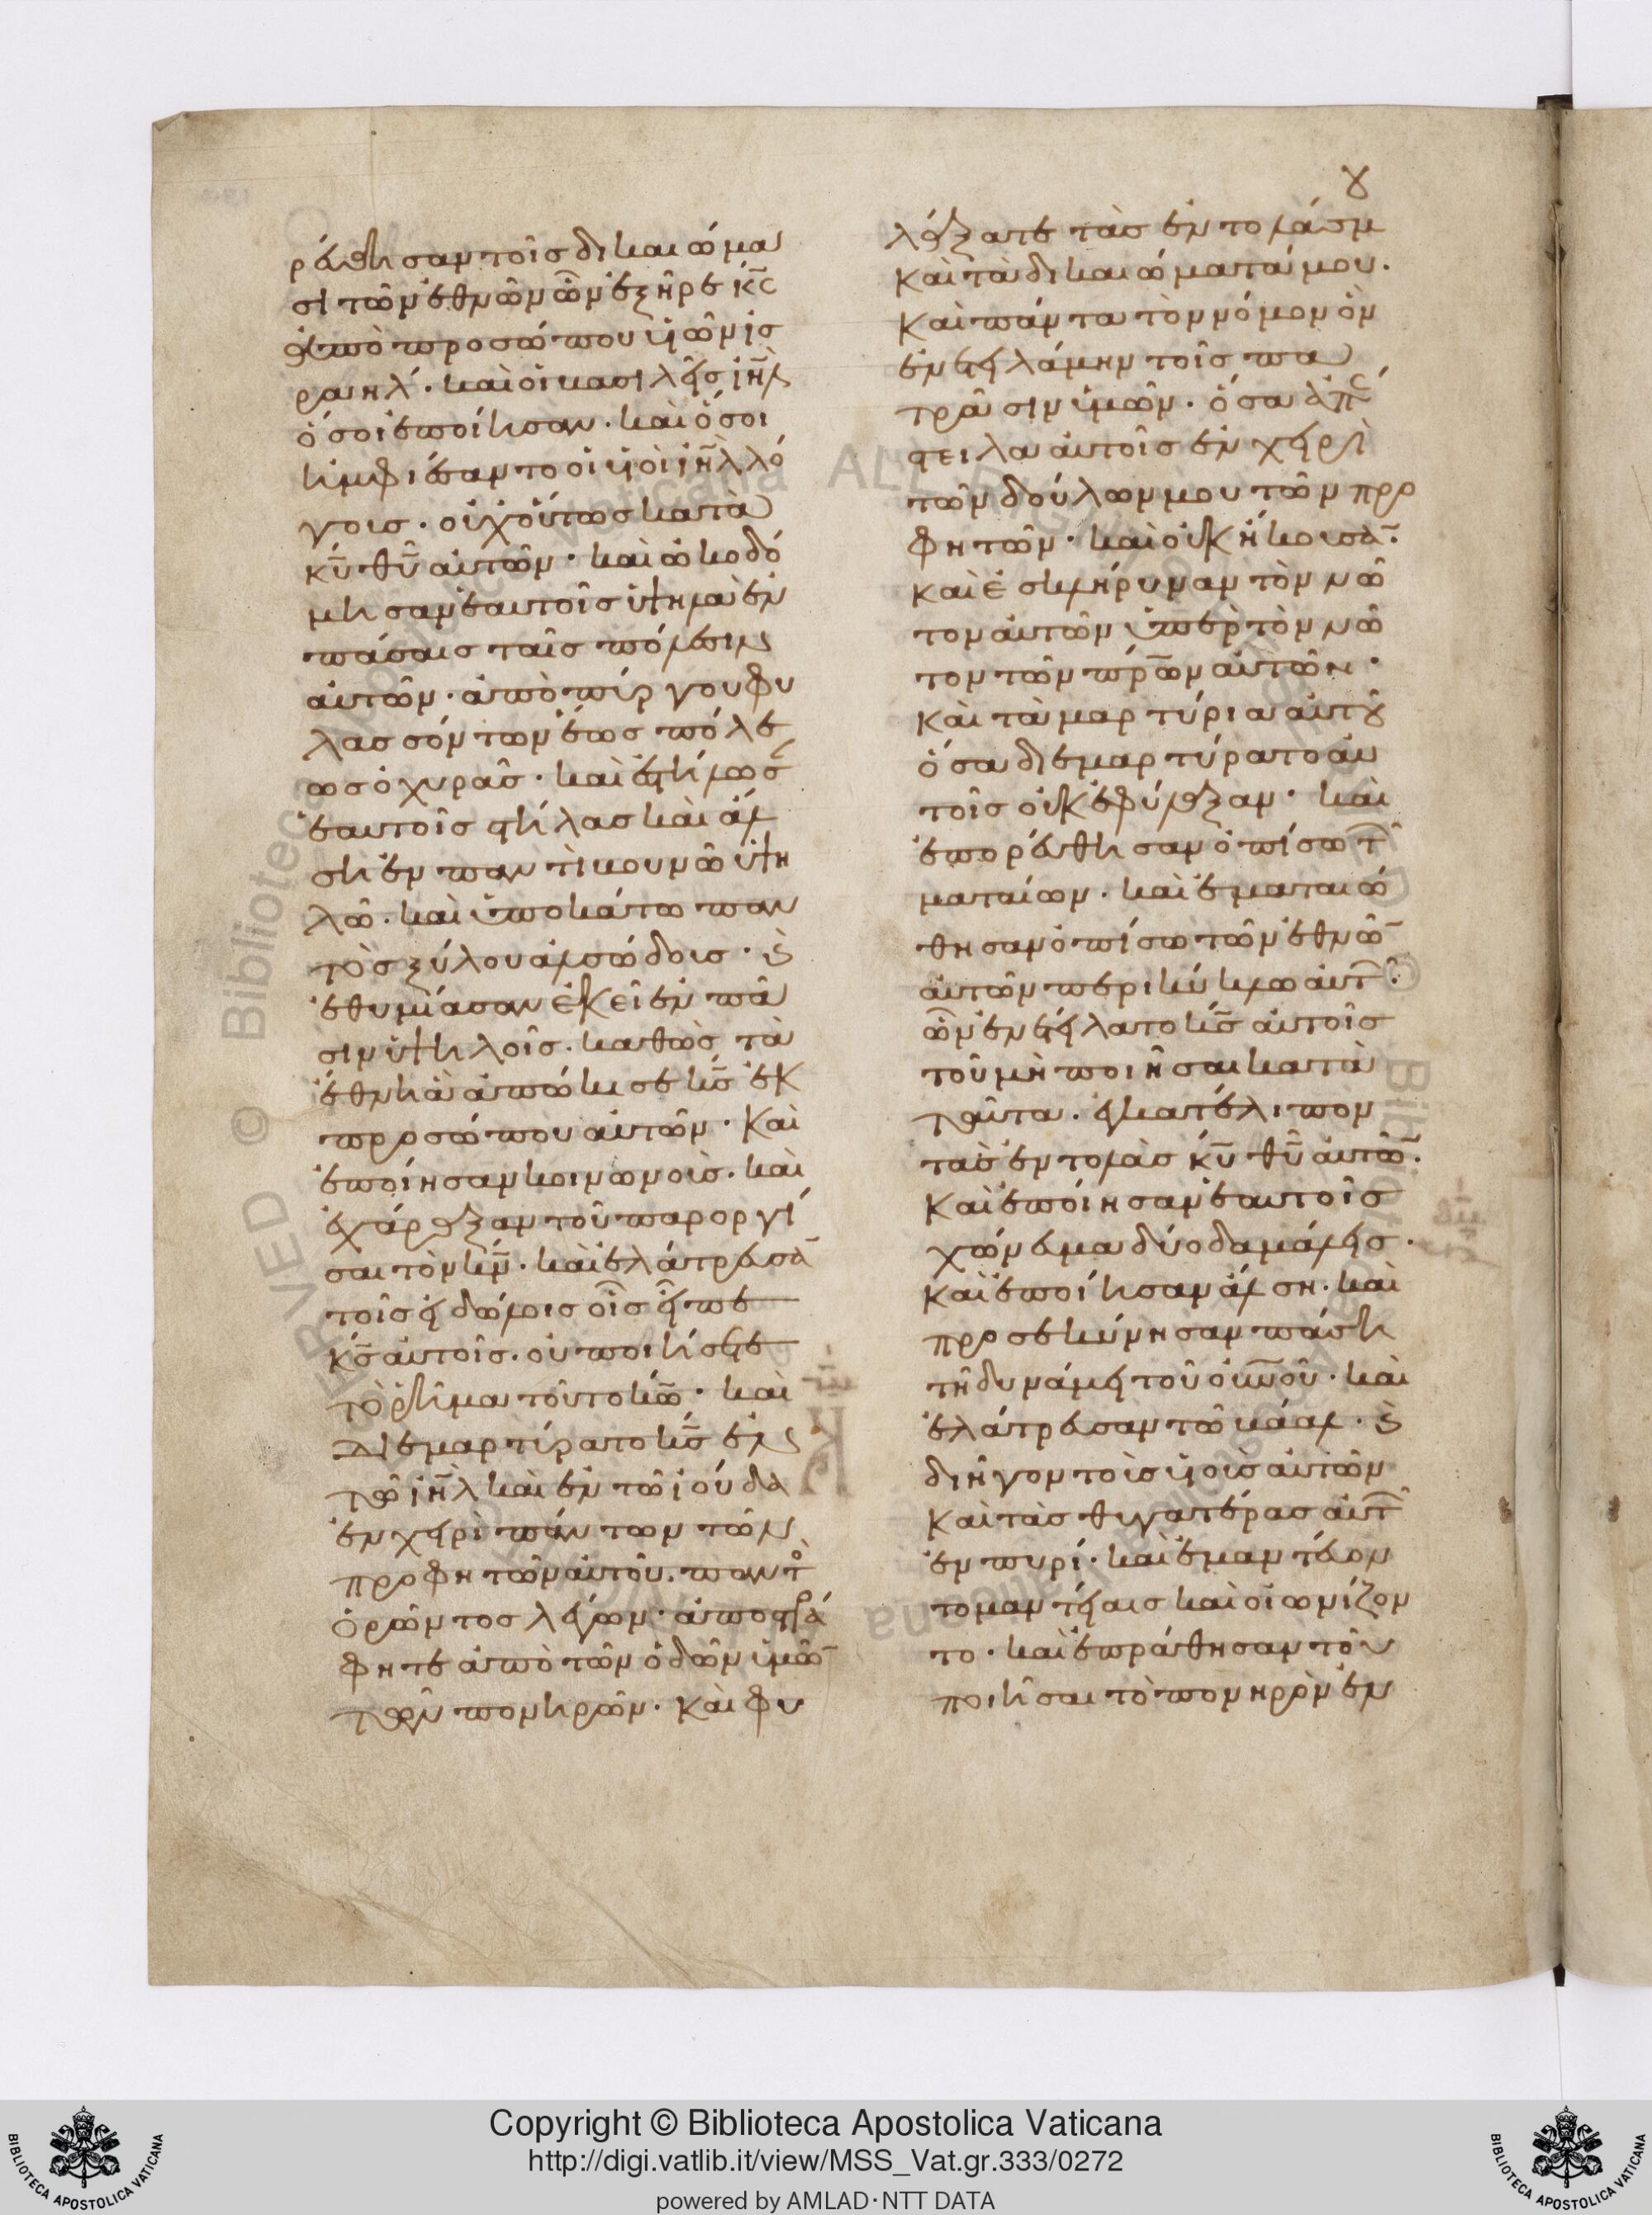 ρεύθησαν τοῖς δικαιώμα
σι τῶν ἐθνῶν ὧν ἐξῆρε κ̅ς̅
ἀπὸ προσώπου υἱῶν ἰσ
ραηλ. καὶ οἱ βασιλεῖς ἰη̅λ̅
ὅσοι ἐποίησαν. καὶ ὅσοι
ἠμφιέσαντο οἱ υἱοὶ ἰη̅λ̅ λό
γοις. οὐχ οὕτως κατὰ
κ̅υ̅ θ̅υ̅ αὐτῶν. καὶ ὠκοδό
μησαν ἑαυτοῖς ὑψηλὰ ἐν
πάσαις ταῖς πόλεσιν
αὐτῶν. ἀπὸ πύργου φυ
λασσόντων ἕως πόλε
ως ὀχυρᾶς. καὶ ἐστήλωσ̅
ἑαυτοῖς στήλας καὶ ἄλ
ση ἐν παντὶ βουνῷ ὑψη
λῷ. καὶ ὑποκάτω παν
τὸς ξύλου ἀλσώδοις. καὶ
ἐθυμίασαν ἐκεῖ ἐν πᾶ
σιν ὑψηλοῖς. καθὼς τὰ
ἔθνη ἃ ἀπώκισε κ̅ς̅ ἐκ
προσώπου αὐτῶν. Καὶ
ἐποίησαν κοινωνοὺς. καὶ
ἐχάραξαν τοῦ παροργί
σαι τὸν κ̅ν̅. καὶ ἐλάτρευσα̅
τοῖς εἰδώλοις οἷς εἶπε
κ̅ς̅ αὐτοῖς. οὐ ποιήσετε
τὸ ῥῆμα τοῦτο κ̅ω̅. καὶ
Διεμαρτύρατο κ̅ς̅ ἐν
τῷ ἰη̅λ̅ καὶ ἐν τῷ ἰούδα
ἐν χειρὶ πάντων τῶν
προφητῶν αὐτοῦ. παντὸ
ὁρῶντος λέγων. ἀποστρά
φητε ἀπὸ τῶν ὁδῶν ὑμῶ̅
τῶν πονηρῶν. Καὶ φυ
λάξατε τὰς ἐντολάς μȣ
Καὶ τὰ δικαιώματά μου.
Καὶ πάντα τὸν νόμον ὃν
ἐνετειλάμην τοῖς πα
τράσιν ὑμῶν. ὅσα ἀπέσ
τειλα αὐτοῖς ἐν χειρὶ
τῶν δούλων μου τῶν προ
φητῶν. καὶ οὐκ ἤκουσα̅.
Καὶ ἐσκλήρυναν τὸν νῶ
τον αὐτῶν ὑπὲρ τὸν νῶ
τον τῶν π̅ρ̅ω̅ν αὐτῶν.
Καὶ τὰ μαρτύρια αὐτȣ
ὅσα διεμαρτύρατο αὐ
τοῖς οὐκ ἐφύλαξαν. καὶ
ἐπορεύθησαν ὀπίσω τ̅
ματαίων. καὶ ἐματαιώ
θησαν ὀπίσω τῶν ἐθνῶ̅
αὐτῶν περικύκλω αὐτ̅.
ὧν ἐνετείλατο κ̅ς̅ αὐτοῖς
τοῦ μὴ ποιῆσαι κατὰ
ταῦτα. ἐγκατέλιπον
τὰς ἐντολὰς κ̅υ̅ θ̅υ̅ αὐτῶ̅.
Καὶ ἐποίησαν ἑαυτοῖς
χώνευμα δύο δαμάλεις.
Καὶ ἐποίησαν ἄλση. καὶ
προσεκύνησαν πάση
τῆ δυνάμει τοῦ οὐ̅ν̅οῦ. καὶ
ἐλάτρευσαν τῶ βάαλ. καὶ
διῆγον τοὺς υἱοὺς αὐτῶν
Καὶ τὰς θυγατέρας αὐτ̅
ἐν πυρί. καὶ ἐμαντεύον
το μαντείαις καὶ οἰωνίζον
το. καὶ ἐπράθησαν τοῦ
ποιῆσαι τὸ πονηρὸν ἐν
Copyright © Biblioteca Apostolica Vaticana
http://digi.vatlib.it/view/MSS_Vat.gr.333/0272
powered by AMLAD·NTT DATA